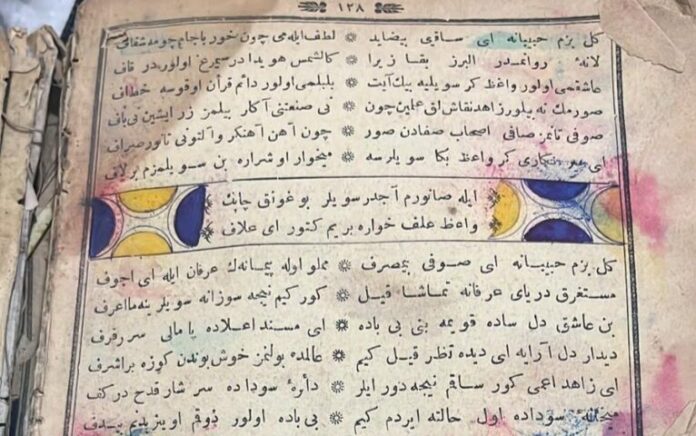 ١٣٨
كل بزم حبيبانه اى ساقئ بيضايد ❊ لطف ايله مى چون خور ياجام
لانه روانمدر البرز بقا زيرا ❊ كالشمس هويدا در سيمرغ اولور در قاف
عاشقمى اولور واعظ كر سويليه بيك آيت ❊ بلبلمى اولور دائم قرآن اوقوسه خطاف
صورمك نه بيلور زاهد نقاش ❊ نى صنعتنى آكلار بيلمز زر ايشين نى باف
صوفى تانمز صافئ اصحاب صفادن صور ❊ چون آهن آهنكر وآلتونى صراف
اى كر واعظ بكا سويلرسه ❊ ميخوار او شراره بن سويلمزم بر لاف
ايله صانورم آجدر سويلر بو غوغق چابت
واعظ علف خواره بريم كتور اى علاف
كل بزم حبيبانه اى صوفى بيمصرف ❊ مملو اوله پيمانه‌ك عرفان ايله اى اجوف
مستغرق درياى عرفانه تماشا قيل ❊ كور كيم نيجه سوزانه سويلر ينه مااعرف
بن عاشق دل ساده قويمه بنى بى باده ❊ اى مسند اعلاده يا مالى سر رفرف
ديدار دل آرايه اى ديده نظر قيل كيم ❊ عالمده بولنمز خوش بوندن كوزه بر اشرف
اى زاهد اعمى كور ساقى نيجه دور ايلر ❊ دائره سوداده سر شار قدح در كف
سوداده اول حالته ايردم كيم ❊ بى باده اولور ذوقم